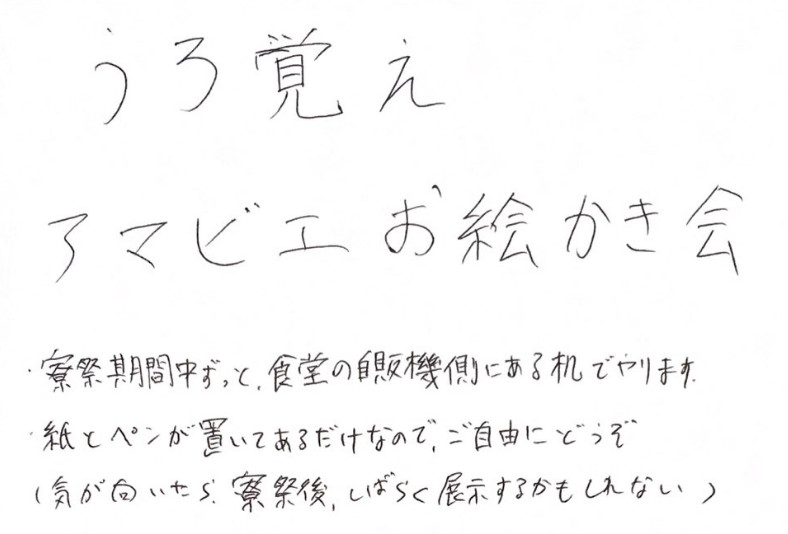 うろ覚え
アマビエお絵かき会
・寮祭期間中ずっと、食堂の自販機側にある机でやります。
・紙とペンが置いてあるだけなので、ご自由にどうぞ
(気が向いたら、寮祭後、しばらく展示するかもしれない)